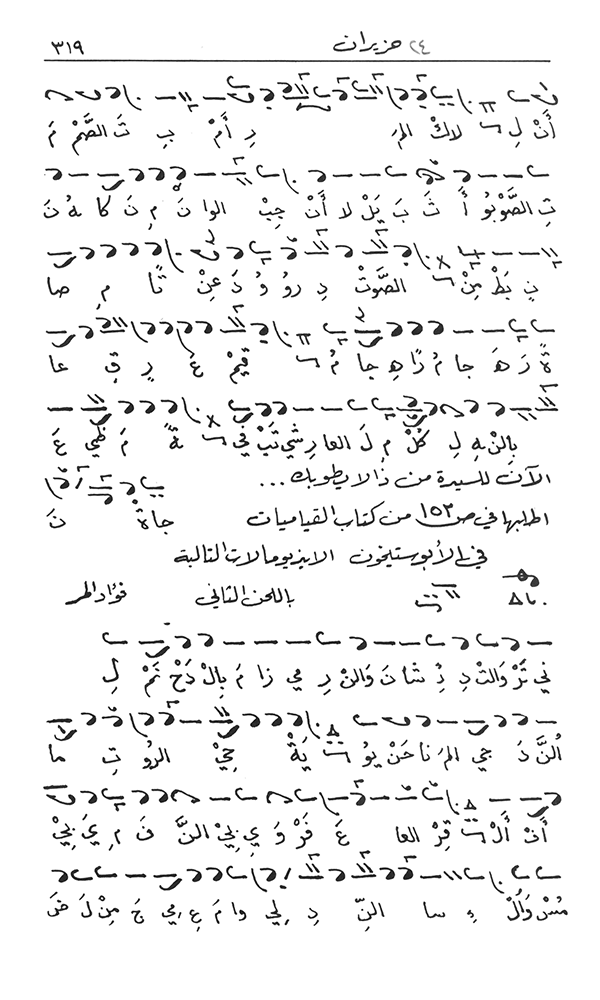 ٢٤ حزيران ٣١٩
أَنْ لِ لاكْ المَ رِ أَمْ بِ تَ الصَّمْ مَ
تِ الصَّوْ بُو أَ ثَ بَ يَلْ لا أَنْ جِبْ الوا نْ مِ نَ كا هُ نَ
نِ بَطْ مِنْ الصَّوْتْ دِ رو وُ دَ عِنْ تًا مِ صا
ةً رَ هَ جا مُ زًا هِ جا مُ قِيمْ عَ رٍ قِ عا
بِالنْ هِ لِ كُلْ مِ لَ العا رِ شي تَبْ في ةً مَ ظي عَ
الآن للسيدة من ذا لا يطوبك...
جاةْ نَ
اطلبها في ص ١٥٣ من كتاب القياميات
في الأبوستيخون الايذيوملات التالية
باللحن الثاني فؤاد المر
في تَرْ وَالتْ دِ ذِ شا نَ وَالنْ رِ مي زا مَ بِالْ دَحْ نَمْ لِ
النَّ دَ جي المَ نا حَنْ يو يَةْ حِيْ الرُوْ تِ ما
أَنْ أَلْ قِرْ العا عَ فَرْ وَ يِ بِيْ النَّ فَ مِ يَ بِيْ
مُسْ وَالْ ءِ سا النِّ دِ لي وا مَ عِ مي جَ مِنْ لَ ضَ